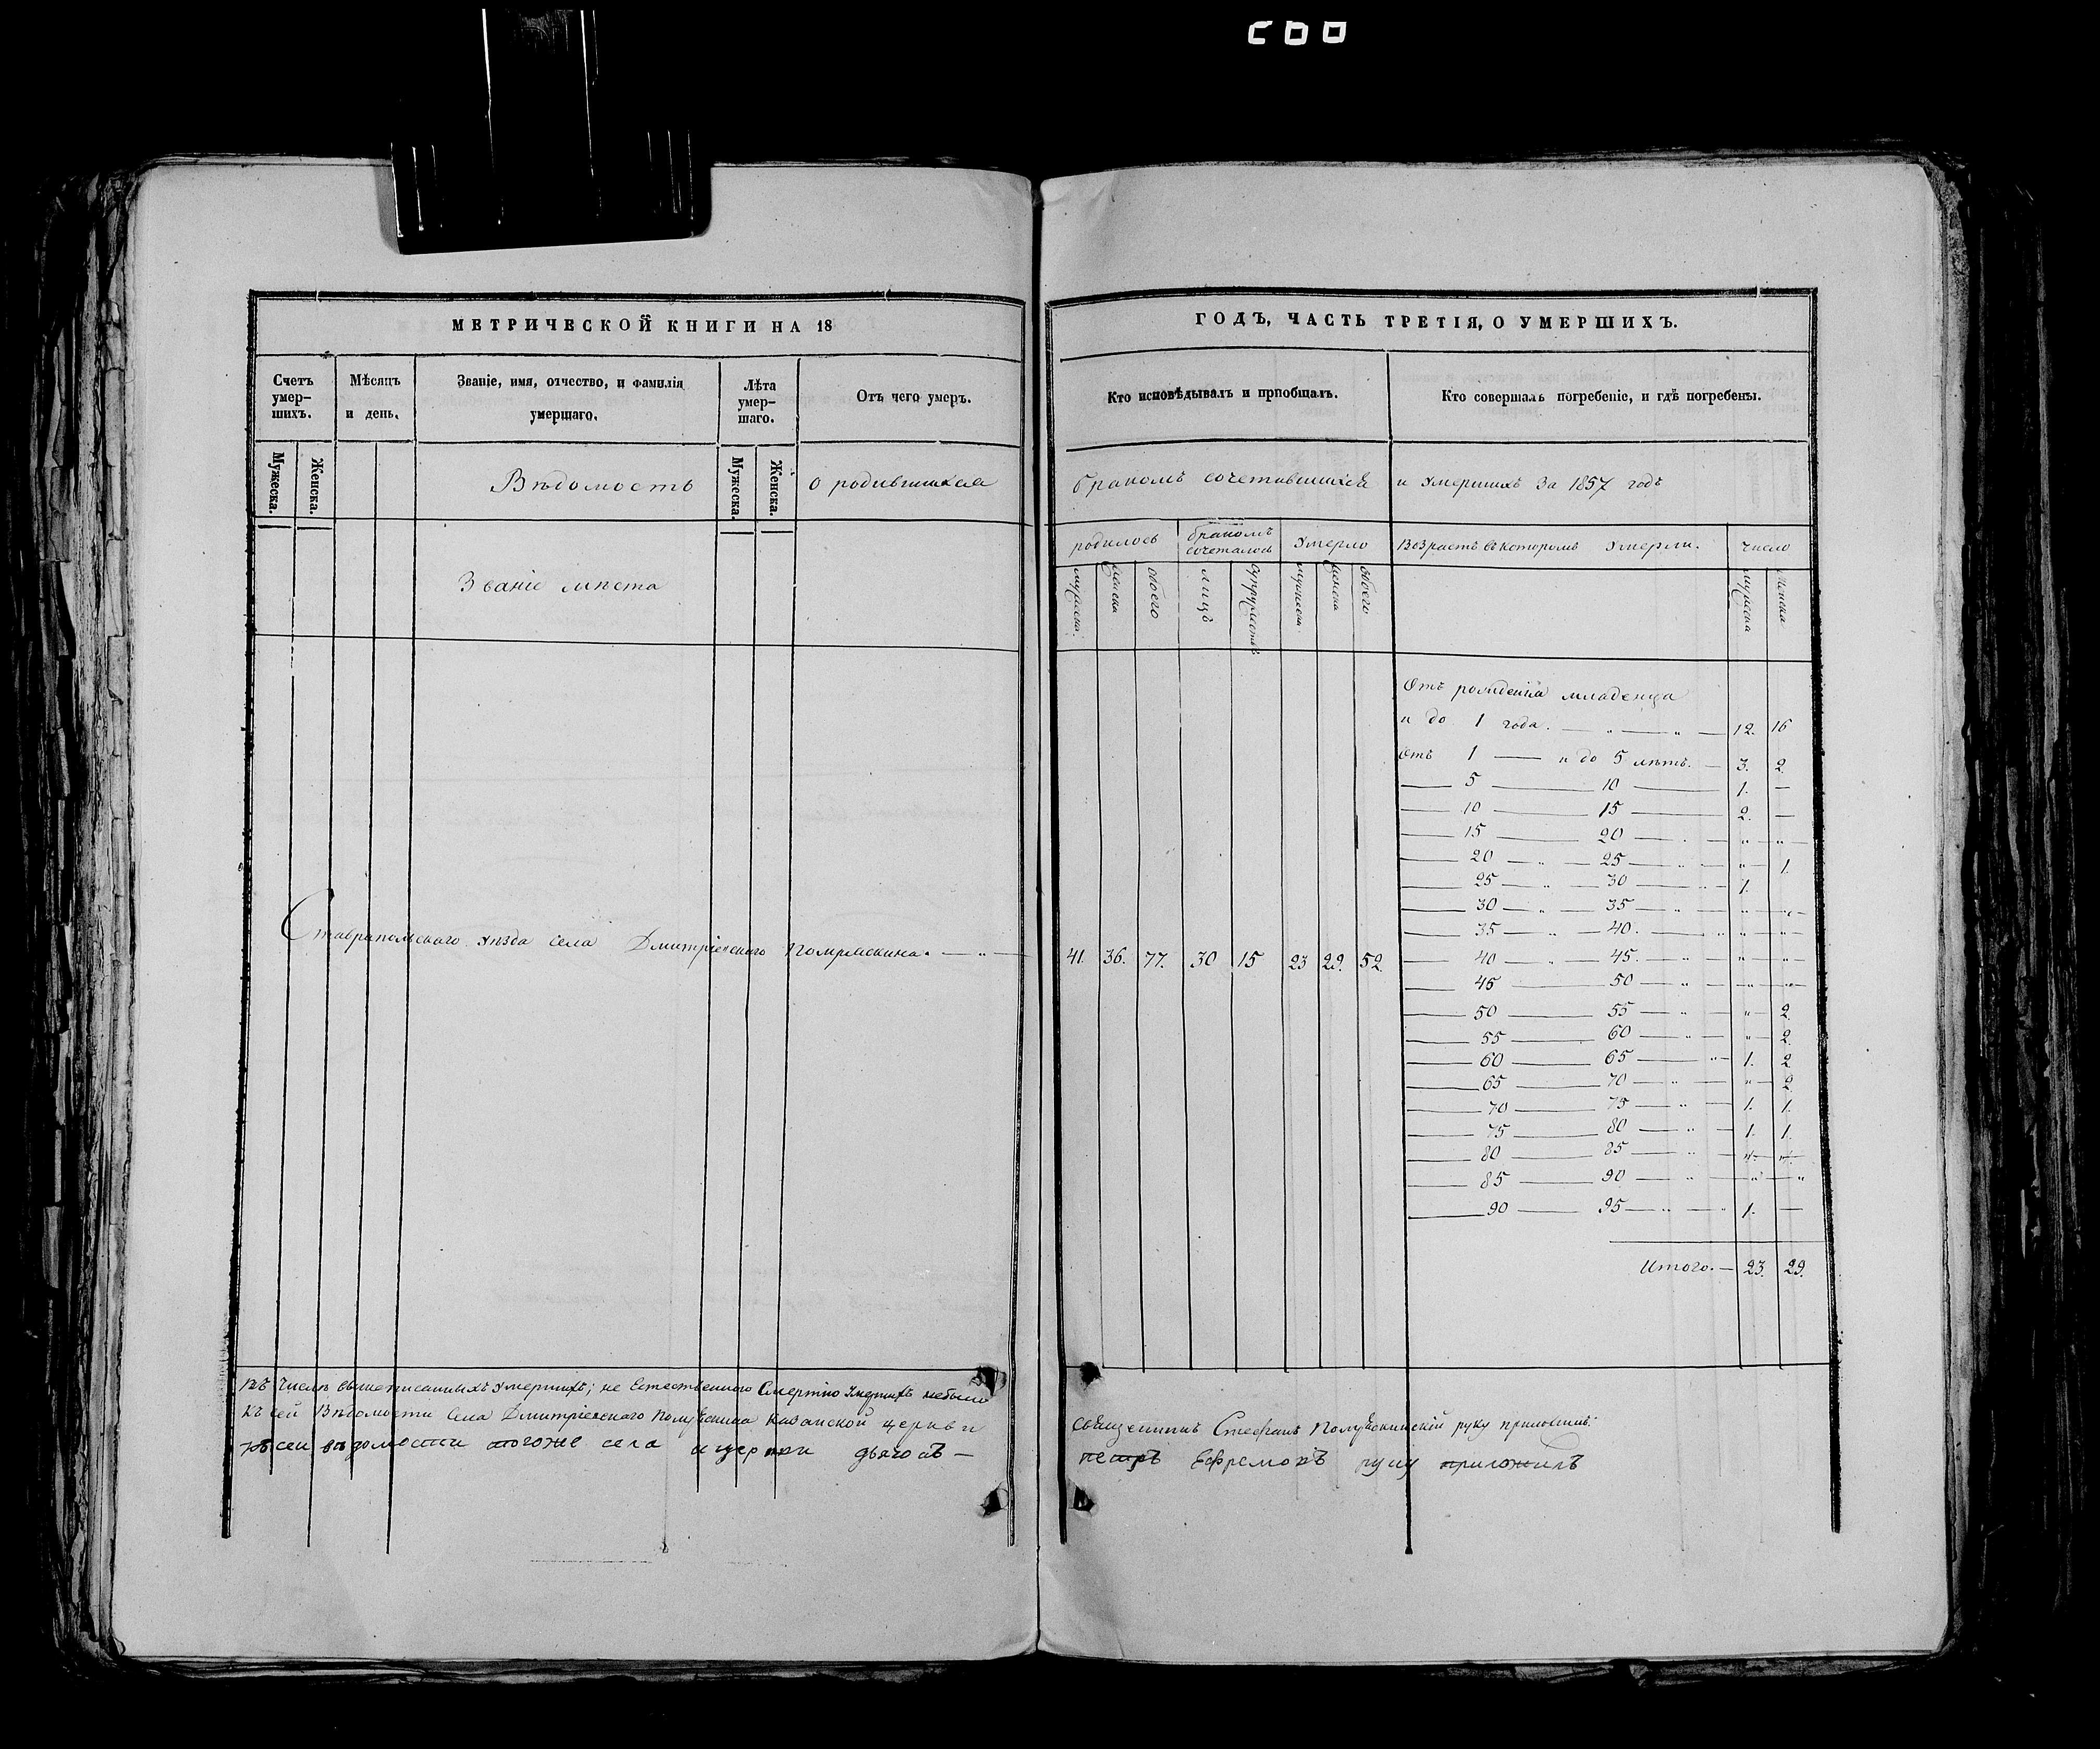 МЕТРИЧЕСКОЙ КНИГИ НА 18
Счетъ умер-
шихъ.
Мѣсяцъ
и день.
Званіе, имя, отчество, и фамилія
умершаго.
Лѣта
умер-
шаго.
Отъ чего умеръ.
Мужеска.
Женска.
Мужеска.
Женска.
Вѣдомость
о родившихся
Званіе мѣста
Ставрапольскаго уѣзда села Дмитріевскаго Помряскина.
Въ числѣ вышеписанныхъ умершихъ; не естественною смертію умершихъ небыло
Къ сей вѣдомости села Дмитріевскаго Помряскина Казанской церкви
Къ сеи ведомости тогоже села ицеркви дьячокъ —
ГОДЪ, ЧАСТЬ ТРЕТІЯ, О УМЕРШИХЪ.
Кто исповѣдывалъ и пріобщалъ.
Кто совершалъ погребеніе, и гдѣ погребены.
бракомъ сочетавшихся
и умершихъ за 1857 годъ
родилось
бракомъ
сочеталось
умерло
Возрастъ въ которомъ умерли.
число
мужеска.
женска
обоего
лицъ
супружествъ
мужеска
женска
обоего
мужеска
женска
41. 36. 77. 30 15 23 29. 52.
Отъ рожденія младенца
и до 1 года. — „ — „ — 12. 16
Отъ 1 — и до 5 лѣтъ. — 3. 2.
— 5 — 10 — 1. —
— 10 — 15 — 2. —
— 15 — 20 — „ „
— 20 — „ — 25 — „ — „ 1.
— 25 — „ — 30 — „ — 1.
— 30 — „ — 35 — „ — „ „
— 35 — „ — 40. — „ — „ „
— 40 — „ — 45. — „ — „ „
— 45 — 50 — „ — „ „
— 50 — 55 — „ — „ 2.
— 55 — 60 — „ — „ 2.
— 60 — 65 — „ — 1. 2
— 65 — 70 — „ — „ 2.
— 70 — 75 — „ — 1. 1.
— 75 — 80 — „ — 1. 1.
— 80 — 85 — „ — „ „
— 85 — 90 — „ — „ „
— 90 — 95 — „ — 1. —
Итого. — 23. 29.
священникъ Стефанъ Помряскинскій руку приложилъ.
петръ Ефремовъ руку приложилъ